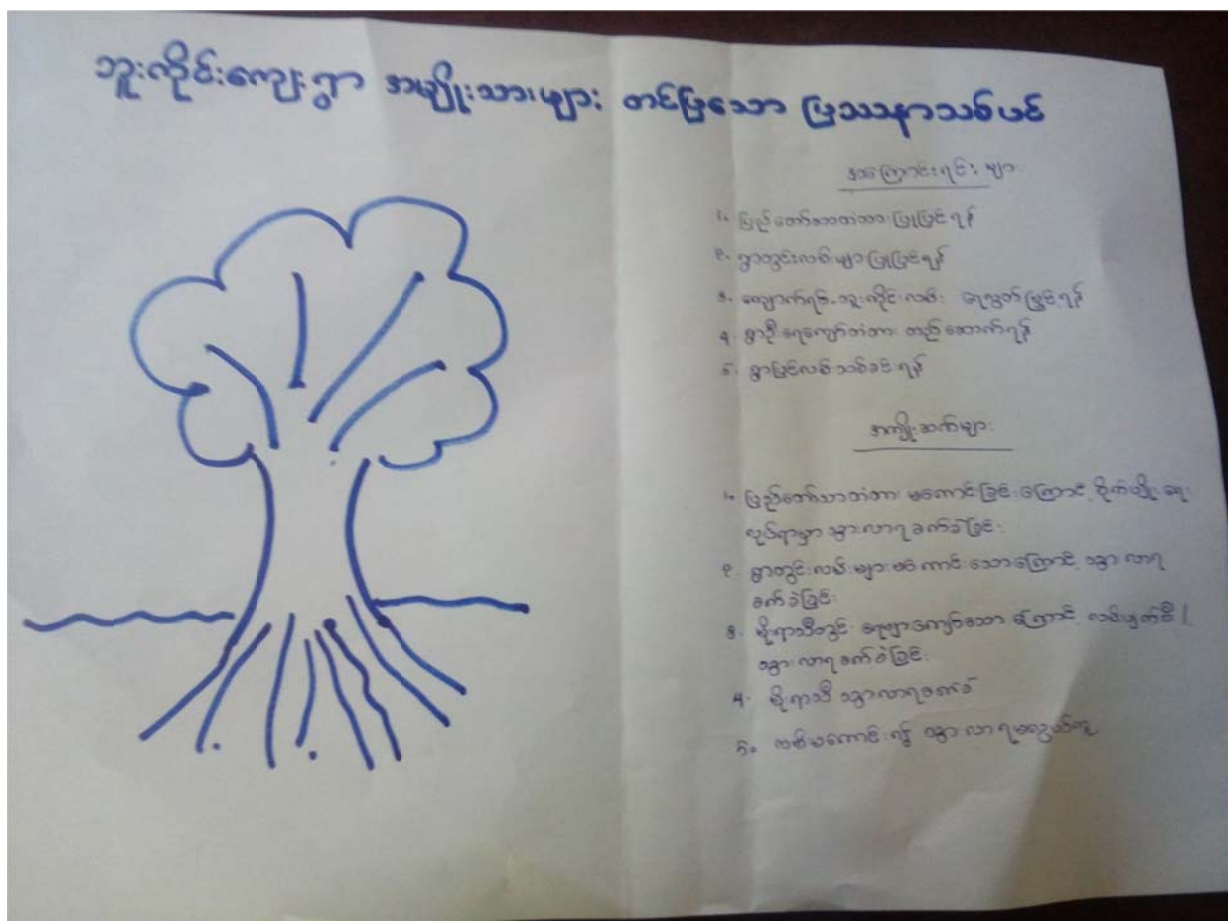 ဘူးကိုင်းကျေးရွာ အမျိုးသားများ တင်ပြသော ပြဿနာသစ်ပင်
အကြောင်းရင်းများ
၁။ ပြည်တော်သာတံတား ပြုပြင်ရန်
၂။ ရွာတွင်းလမ်းများပြုပြင်ရန်
၃။ ကျောက်ရစ်-ဘူးကိုင်းလမ်း ရေလွှတ်မြှင့်ရန်
၄။ ရွာဦးရေကျော်တံတား တည်ဆောက်ရန်
၅။ ရွာပြင်လမ်းသစ်ခင်းရန်
အကျိုးဆက်များ
၁။ ပြည်တော်သာတံတား မကောင်းခြင်းကြောင့် စိုက်ပျိုးရေး
လုပ်ရာမှာ သွားလာရခက်ခဲခြင်း
၂။ ရွာတွင်းလမ်းများမကောင်းသောကြောင့် သွားလာရ
ခက်ခဲခြင်း
၃။ မိုးရာသီတွင် ရေများကျော်သောကြောင့် လမ်းပျက်စီး၍
သွားလာရခက်ခဲခြင်း
၄။ မိုးရာသီ သွားလာရခက်ခဲ
၅။ လမ်းမကောင်း၍ သွားလာရမလွယ်ကူ